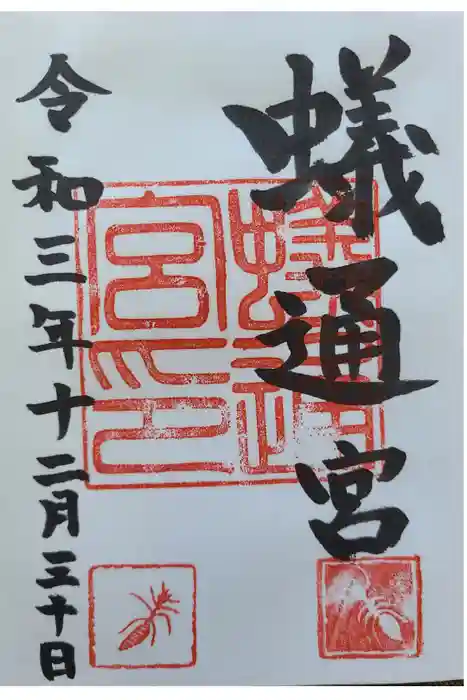 蟻通宮
令和三年十二月三十日
蟻通
宮印